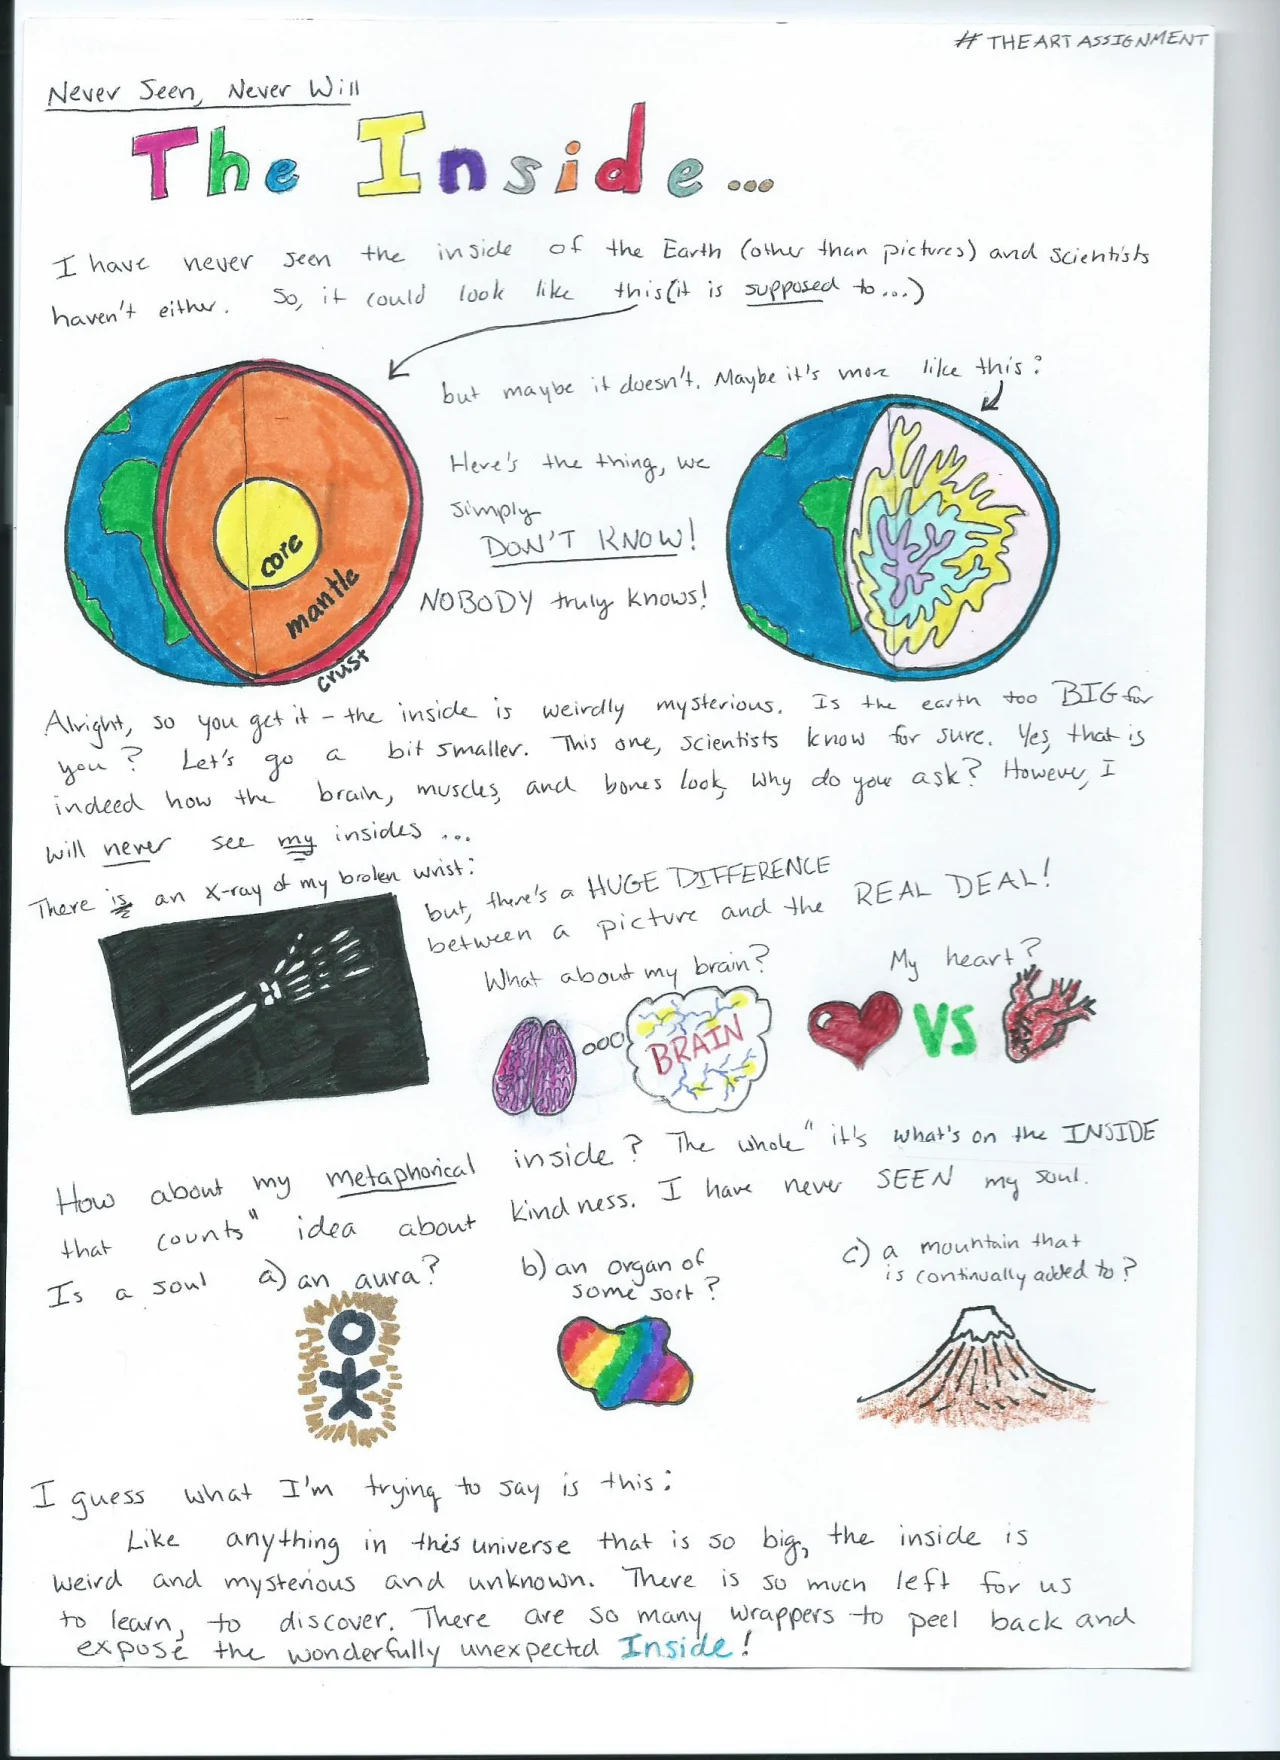 # THEARTASSIGNMENT
Never Seen, Never Will
The Inside...
I have never seen the inside of the Earth (other than pictures) and scientists
haven't either. So, it could look like this (it is supposed to...)
but maybe it doesn't. Maybe it's more like this:
Here's the thing, we
simply
DON'T KNOW!
NOBODY truly knows!
core
mantle
crust
Alright, so you get it - the inside is weirdly mysterious. Is the earth too BIG for
you? Let's go a bit smaller. This one, scientists know for sure. Yes, that is
indeed how the brain, muscles, and bones look, why do you ask? However, I
will never see my insides ...
There is an X-ray of my broken wrist:
but, there's a HUGE DIFFERENCE
between a picture and the REAL DEAL!
What about my brain?
My heart?
BRAIN
VS
How about my metaphorical inside? The whole "it's what's on the INSIDE
that counts" idea about kindness. I have never SEEN my soul.
Is a soul a) an aura?
b) an organ of
some sort?
c) a mountain that
is continually added to?
I guess what I'm trying to say is this:
Like anything in this universe that is so big, the inside is
weird and mysterious and unknown. There is so much left for us
to learn, to discover. There are so many wrappers to peel back and
expose the wonderfully unexpected Inside!